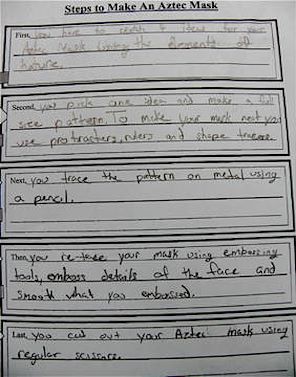 Steps to Make An Aztec Mask
First, you have to sketch 4 ideas for your
Aztec Mask using the elements of
nature.
Second, you pick one idea and make a full
size pattern. To make your mask next you
use protracters, rulers and shape tracers.
Next, you trace the pattern on metal using
a pencil.
Then, you re-trace your mask using embossing
tools, emboss details of the face and
smooth what you embossed.
Last, you cut out your Aztec mask using
regular scissors.